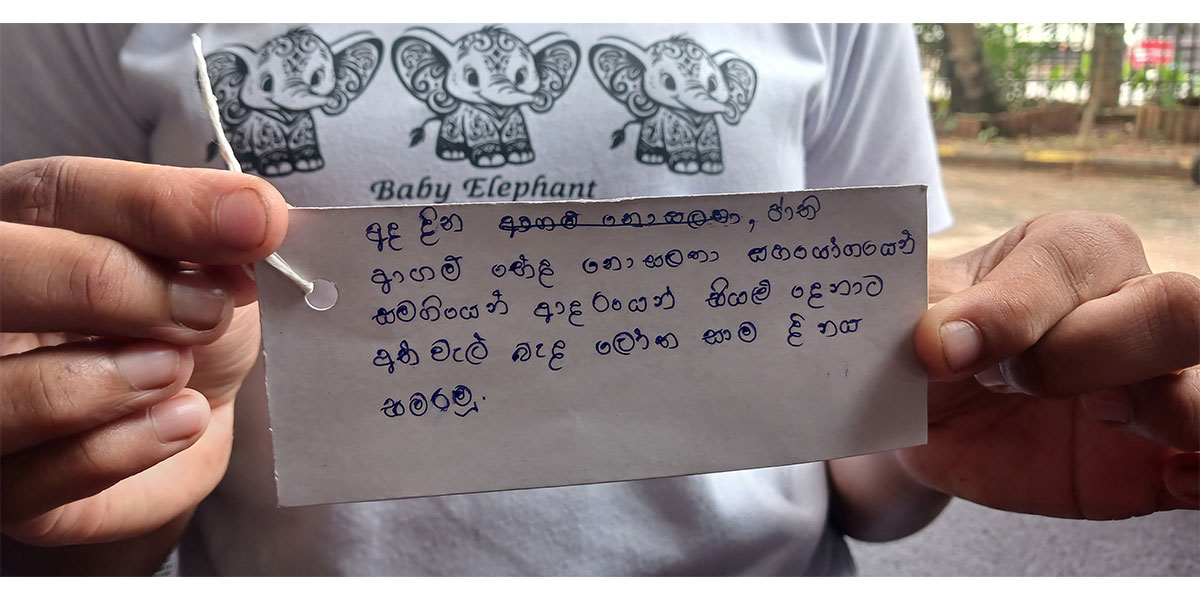 Baby Elephant
අද දින ආගම් නොසලකා, ජාති
ආගම් භේද නොසලකා සහයෝගයෙන්
සමගියෙන් ආදරයෙන් සියලු දෙනාට
අත් වැල් බැඳ ලෝක සාම දිනය
සමරමු.